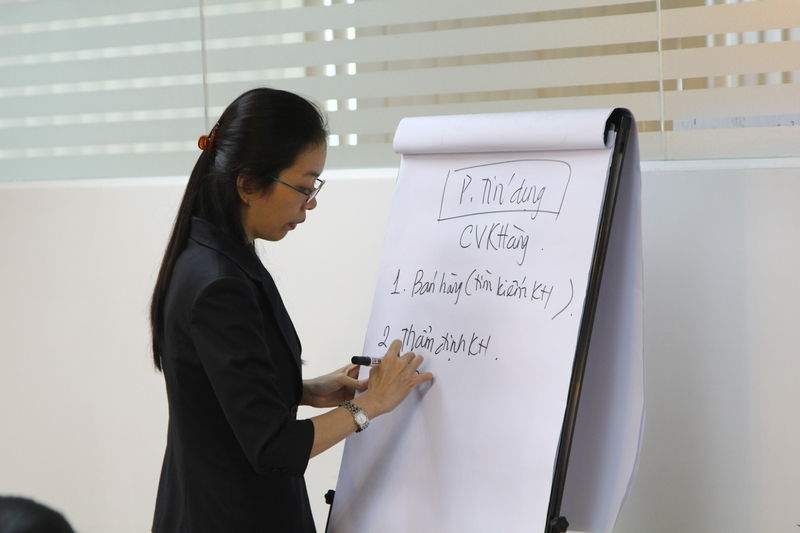 P. Tín dụng
CVKHàng.
1. Bán hàng (tìm kiếm KH).
2. Thẩm định KH.